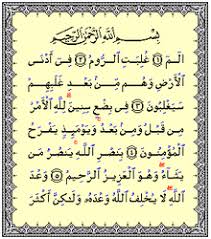 بِسْمِ ٱللَّهِ ٱلرَّحْمَٰنِ ٱلرَّحِيمِ
الٓمٓ ۝١ غُلِبَتِ ٱلرُّومُ ۝٢ فِىٓ أَدْنَى
ٱلْأَرْضِ وَهُم مِّنۢ بَعْدِ غَلَبِهِمْ
سَيَغْلِبُونَ ۝٣ فِى بِضْعِ سِنِينَ ۗ لِلَّهِ ٱلْأَمْرُ
مِن قَبْلُ وَمِنۢ بَعْدُ ۚ وَيَوْمَئِذٍ يَفْرَحُ
ٱلْمُؤْمِنُونَ ۝٤ بِنَصْرِ ٱللَّهِ ۚ يَنصُرُ مَن
يَشَآءُ ۖ وَهُوَ ٱلْعَزِيزُ ٱلرَّحِيمُ ۝٥ وَعْدَ
ٱللَّهِ ۖ لَا يُخْلِفُ ٱللَّهُ وَعْدَهُۥ وَلَٰكِنَّ أَكْثَرَ